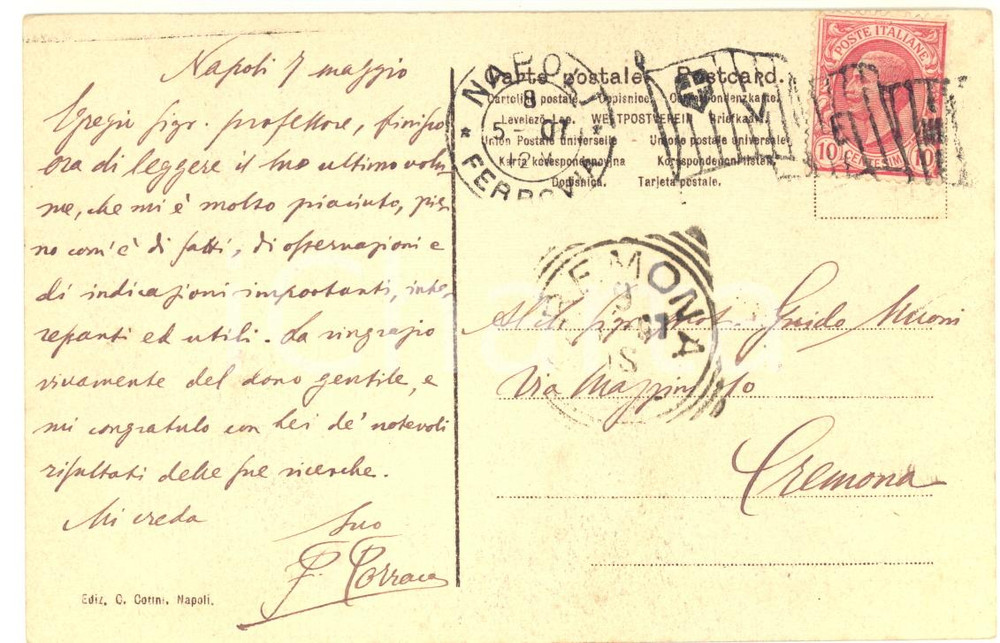 Napoli 7 maggio
Egregio sigr. professore, finisco
ora di leggere il suo ultimo volu-
me, che mi è molto piaciuto, pie-
no com'è di fatti, di osservazioni e
di indicazioni importanti, inte-
ressanti ed utili. La ringrazio
vivamente del dono gentile, e
mi congratulo con Lei de' notevoli
risultati delle sue ricerche.
Mi creda
Suo
F. Torraca
Ediz. C. Cotini, Napoli.
NAPOLI
8
5-07
FERROVIA
Carte postale. Postcard.
Cartolina postale. Dopisnice. Correspondenzkarte.
Levelező-Lap. WELTPOSTVEREIN Briefkaart.
Union Postale universelle - Unione postale universale
Karta korespondencyjna Korrespondenzkarte.
Dopisnica. Tarjeta postale.
POSTE ITALIANE
10 CENTESIMI 10
CREMONA
9
Guido Muoni
Via Mazzini
Cremona